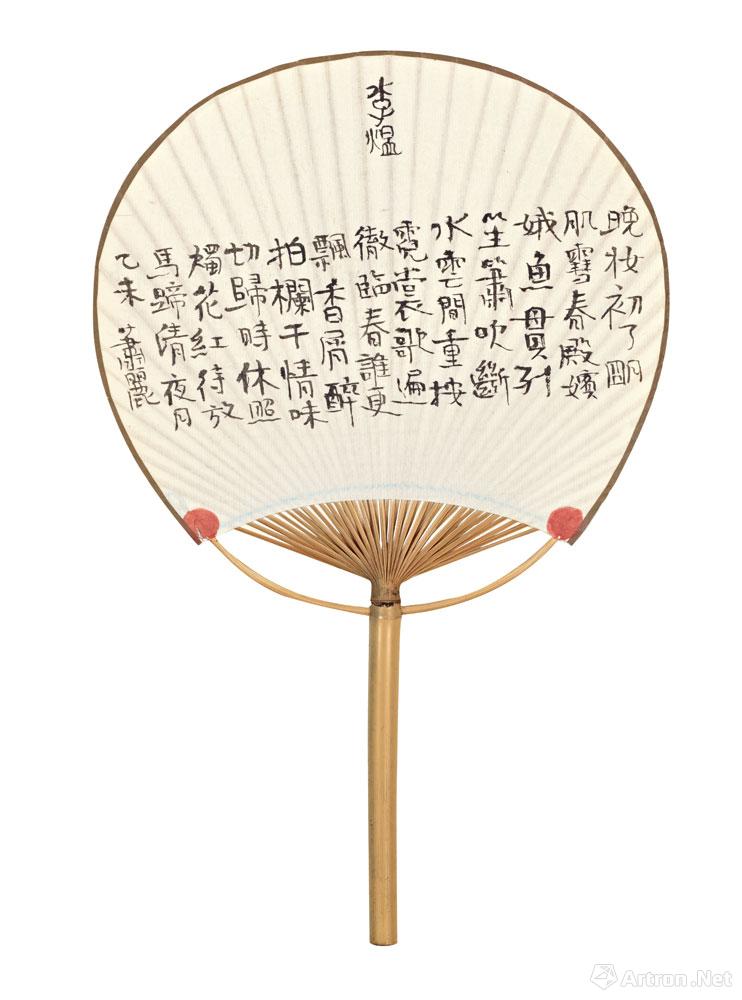 李煜
晚妝初了明
肌雪春殿嬪
娥魚貫列
笙簫吹斷
水雲間重按
霓裳歌遍
徹臨春誰更
飄香屑醉
拍欄干情味
切歸時休照
燭花紅待放
馬蹄清夜月
乙未 蕭麗
Artron.Net